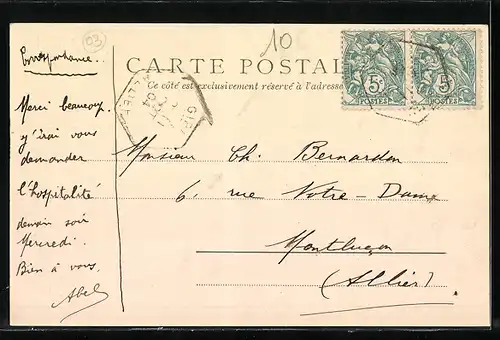 03
10
CARTE POSTALE
Ce côté est exclusivement réservé à l'adresse
5c 5c
POSTES POSTES
Correspondance..
Merci beaucoup.
y'irai vous
demander
l'hospitalité
demain soir
Mercredi.
Bien à vous.
Abel
Monsieur Ch. Bernardon
6, rue Notre-Dame
Montluçon
(Allier)